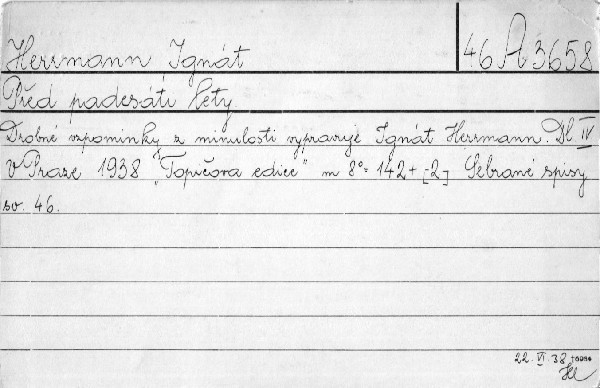 Herrmann Ignát
46 A 3658
Před padesáti lety
Drobné vzpomínky z minulosti vypravuje Ignát Herrmann. Dl IV
V Praze 1938 "Topičova edice" m 8° 142+[2] Sebrané spisy
sv. 46.
22. VI. 38